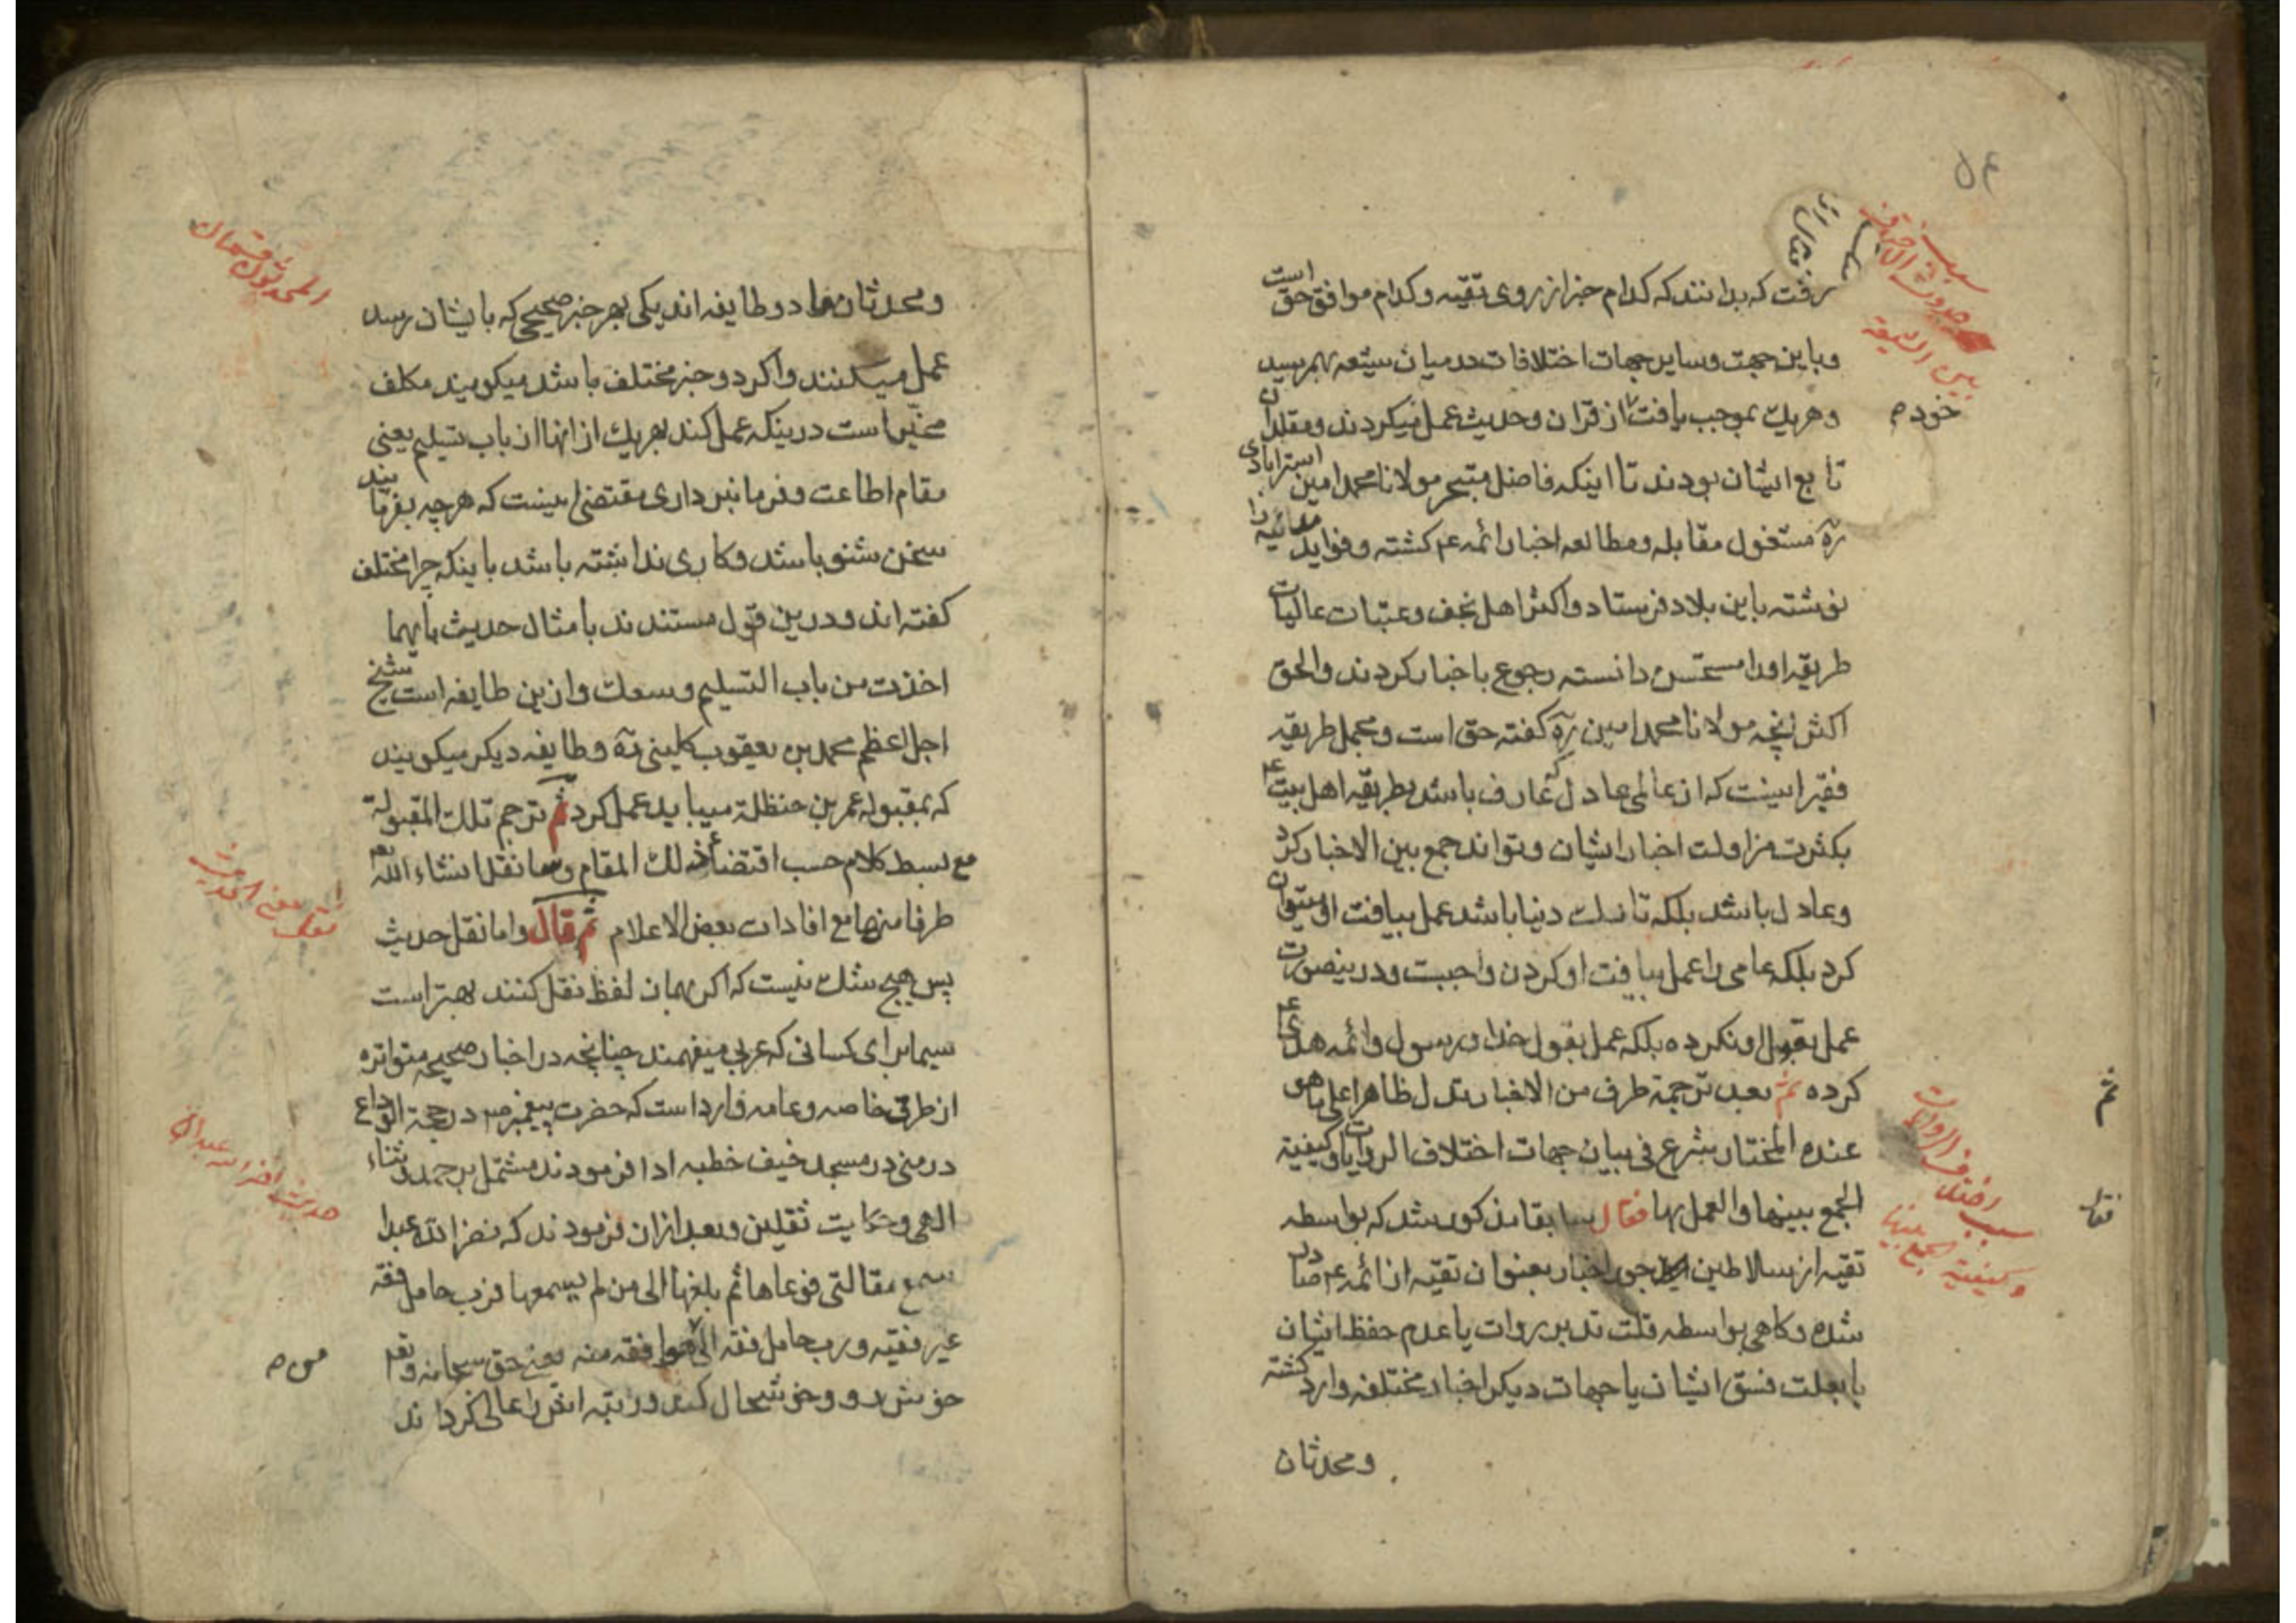 رفت که بدانند که کدام خبر از روی تقیه و کدام موافق حق است
و باین جهت و سایر جهات اختلافات در میان شیعه بهم رسید
و هریک بموجب یافت از قران و حدیث عمل میکردند و مقلدان
خود م
تابع ایشان بودند تا اینکه فاضل متبحر مولانا محمد امین استرابادی
ره مشغول مقابله و مطالعه اخبار ائمه ع کشته و فواید مدنیه را
نوشته باین بلاد فرستاد و اکثر اهل نجف و عتبات عالیات
طریقه اورا مستحسن دانسته رجوع باخبار کردند والحق
اکثر انچه مولانا محمد امین ره کفته حق است و مجمل طریقه
فقیر اینست که از عالمی عادل که عارف باشد بطریقه اهل بیت ع
بکثرت مزاولت اخبار ایشان و تواند جمع بین الاخبار کرد
و عادل باشد بلکه تارک دنیا باشد عمل بیافت او میتوان
کرد بلکه عامی را عمل بیافت او کردن واجبست و درینصورت
عمل بقول او نکرده بلکه عمل بقول خدا و رسول و ائمه هدی ع
کرده ثم بعد ترجمة طرف من الاخبار تدل ظاهرا علی ما هو
عنده المختار شرع فی بیان جهات اختلاف الروایات و کیفیة
الجمع بینها والعمل بها فقال سابقا مذکور شد که بواسطه
تقیه از سلاطین جور اخبار بعنوان تقیه از ائمه ع صادر
شده و کاهی بواسطه قلت تدبر روات یا عدم حفظ ایشان
یا بعلت فسق ایشان یا جهات دیکر اخبار مختلفه وارد کشته
و محدثان
سبب حدوث الاختلاف
بین الشیعة
ثم
سبب اختلاف الروایات
و کیفیة الجمع بینها
فقال
و محدثان ما دو طایفه اند یکی بهر خبر صحیحی که بایشان رسد
عمل میکنند و اکر دو خبر مختلف باشد میکویند مکلف
مخیر است درینکه عمل کند بهر یک از انها از باب تسلیم یعنی
مقام اطاعت و فرمانبرداری مقتضی اینست که هرچه بفرمایند
سخن شنو باشد و کاری نداشته باشد باینکه چرا مختلف
کفته اند و درین قول مستندند بامثال حدیث بایهما
اخذت من باب التسلیم وسعک و ازین طایفه است شیخ
اجل اعظم محمد بن یعقوب کلینی ره و طایفه دیکر میکویند
که بمقبوله عمر بن حنظلة میباید عمل کرد ثم ترجم تلک المقبولة
مع بسط کلام حسب اقتضاء ذلک المقام و سننقل انشاء الله تعم
طرفا منها مع افادات بعض الاعلام ثم قال و اما نقل حدیث
پس هیچ شک نیست که اکر بهمان لفظ نقل کنند بهتر است
سیما برای کسانی که عربی میفهمند چنانچه در اخبار صحیحه متواتره
از طرق خاصه و عامه وارد است که حضرت پیغمبر ص در حجة الوداع
در منی در مسجد خیف خطبه ادا فرمودند مشتمل بر حمد و ثناء
الهی و حکایت ثقلین و بعد ازان فرمودند که نضر الله عبدا
سمع مقالتی فوعاها ثم بلغها الی من لم یسمعها فرب حامل فقه
غیر فقیه و رب حامل فقه الی من هو افقه منه یعنی حق سبحانه و تعم
خوش رو و خوشحال کند و رتبه اش را عالی کرداند
المحدثون قسمان
نقل معنی الحدیث
حدیث نضر الله عبدا
من م